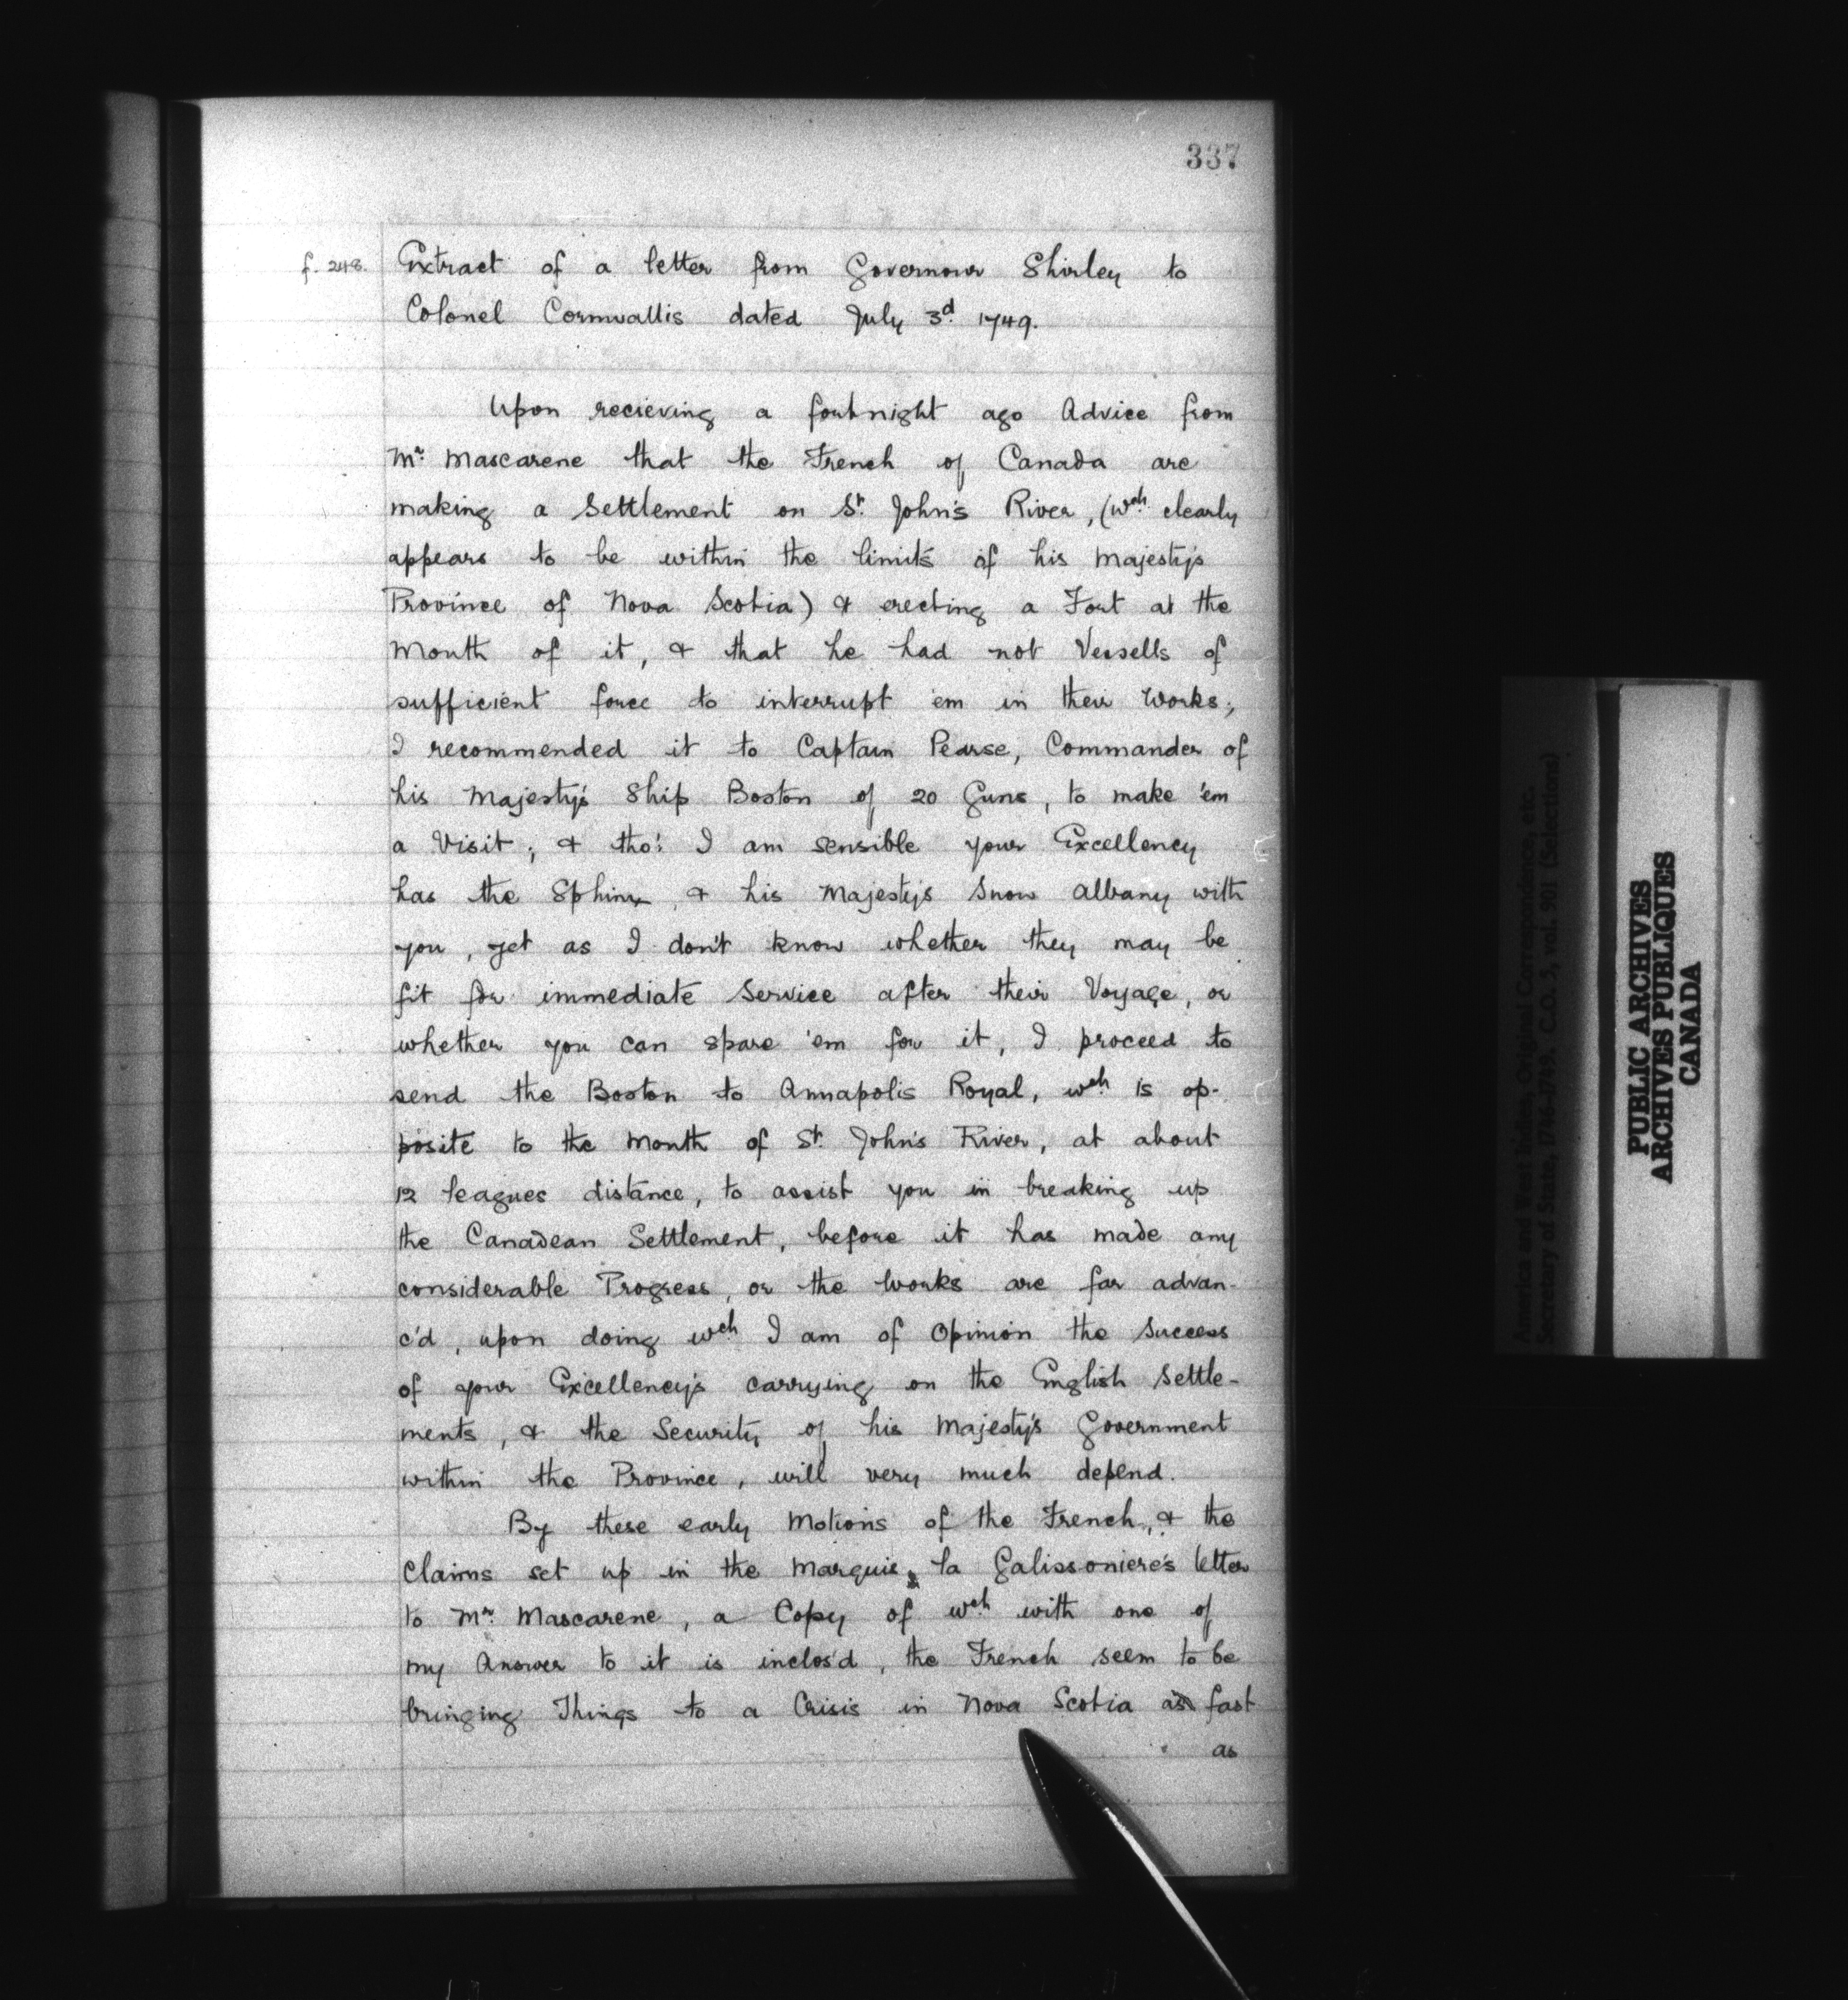 337
f. 248.
Extract of a letter from Governour Shirley to
Colonel Cornwallis dated July 3d. 1749.
Upon recieving a fortnight ago Advice from
Mr. Mascarene that the French of Canada are
making a Settlement on St. John's River, (wch. clearly
appears to be within the limits of his Majesty's
Province of Nova Scotia) & erecting a Fort at the
Mouth of it, & that he had not Vessells of
sufficient force to interrupt 'em in their Works;
I recommended it to Captain Pearse, Commander of
his Majesty's Ship Boston of 20 Guns, to make 'em
a Visit; & tho' I am sensible your Excellency
has the Sphinx, & his Majesty's Snow Albany with
you, yet as I don't know whether they may be
fit for immediate Service after their Voyage, or
whether you can spare 'em for it, I proceed to
send the Boston to Annapolis Royal, wch. is op-
posite to the Mouth of St. John's River, at about
12 leagues distance, to assist you in breaking up
the Canadean Settlement, before it has made any
considerable Progress, or the Works are far advan-
c'd, upon doing wch I am of Opinion the Success
of your Excellency's carrying on the English Settle-
ments, & the Security of his Majesty's Government
within the Province, will very much depend.
By these early Motions of the French, & the
Claims set up in the Marquis la Galissoniere's letter
to Mr. Mascarene, a Copy of wch with one of
my Answer to it is inclos'd, the French seem to be
bringing Things to a Crisis in Nova Scotia as fast
as
America and West Indies, Original Correspondence, etc.
Secretary of State, 1746-1749. C.O. 5, vol. 901 (Selections)
PUBLIC ARCHIVES
ARCHIVES PUBLIQUES
CANADA